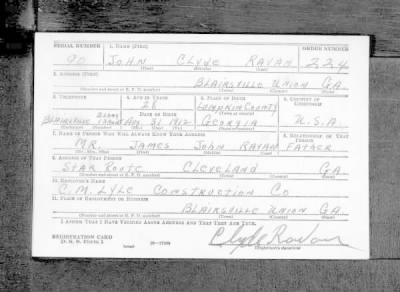 SERIAL NUMBER 1. NAME (Print) ORDER NUMBER
90 JOHN CLYDE RAVAN 224
(First) (Middle) (Last)
2. ADDRESS (Print)
BLAIRSVILLE UNION GA.
(Number and street or R. F. D. number) (Town) (County) (State)
3. TELEPHONE 4. AGE IN YEARS 5. PLACE OF BIRTH 6. COUNTRY OF CITIZENSHIP
28 LUMPKIN COUNTY
BLAIRSVILLE DATE OF BIRTH (Town or county)
AUG. 31 1912 GEORGIA U.S.A.
(Exchange) (Number) (Mo.) (Day) (Yr.) (State or country)
7. NAME OF PERSON WHO WILL ALWAYS KNOW YOUR ADDRESS 8. RELATIONSHIP OF THAT PERSON
MR. JAMES JOHN RAVAN FATHER
(Mr., Mrs., Miss) (First) (Middle) (Last)
9. ADDRESS OF THAT PERSON
STAR ROUTE CLEVELAND GA.
(Number and street or R. F. D. number) (Town) (County) (State)
10. EMPLOYER'S NAME
C. M. LYLE CONSTRUCTION CO
11. PLACE OF EMPLOYMENT OR BUSINESS
BLAIRSVILLE UNION GA.
(Number and street or R. F. D. number) (Town) (County) (State)
I AFFIRM THAT I HAVE VERIFIED ABOVE ANSWERS AND THAT THEY ARE TRUE.
REGISTRATION CARD Clyde Ravan
D. S. S. Form 1 (Registrant's signature)